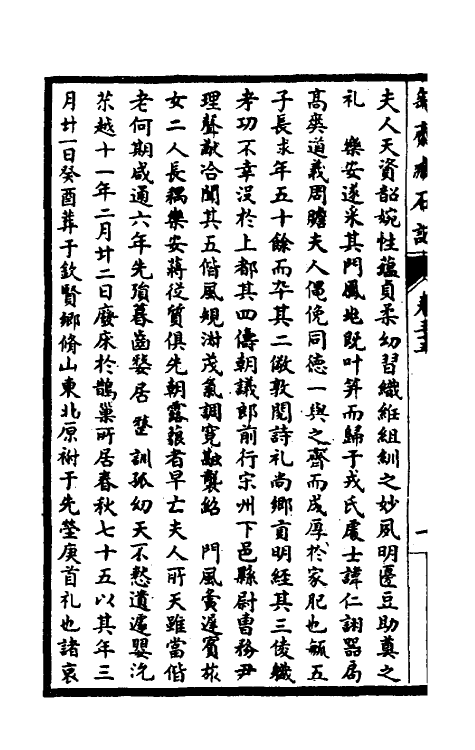 夫人天資韶婉性蘊貞柔幼習織絍組紃之妙夙明籩豆助奠之
礼　樂安遂采其門風地既叶笄而歸于戎氏處士諱仁詡器局
高奧道義周贍夫人僶俛同德一與之齊而成厚於家肥也毓五
子長求年五十餘而卒其二儆敦閱詩礼尚鄉貢明經其三倰職
考功不幸沒於上都其四儔朝議郎前行宋州下邑縣尉曹務尹
理聲猷洽聞其五偕風規溫茂氣調寬融襲紹　門風黃遲賓旅
女二人長獨樂安蔣從質俱先朝露蓀者早亡夫人所天雖當偕
老何期咸通六年先殞暮齒嫠居　訓孤幼天不憗遺遽嬰沉
苶越十一年二月廿二日廢床於鵲巢所居春秋七十五以其年三
月廿一日癸酉葬于欽賢鄉脩山東北原祔于先塋庚首礼也諸哀